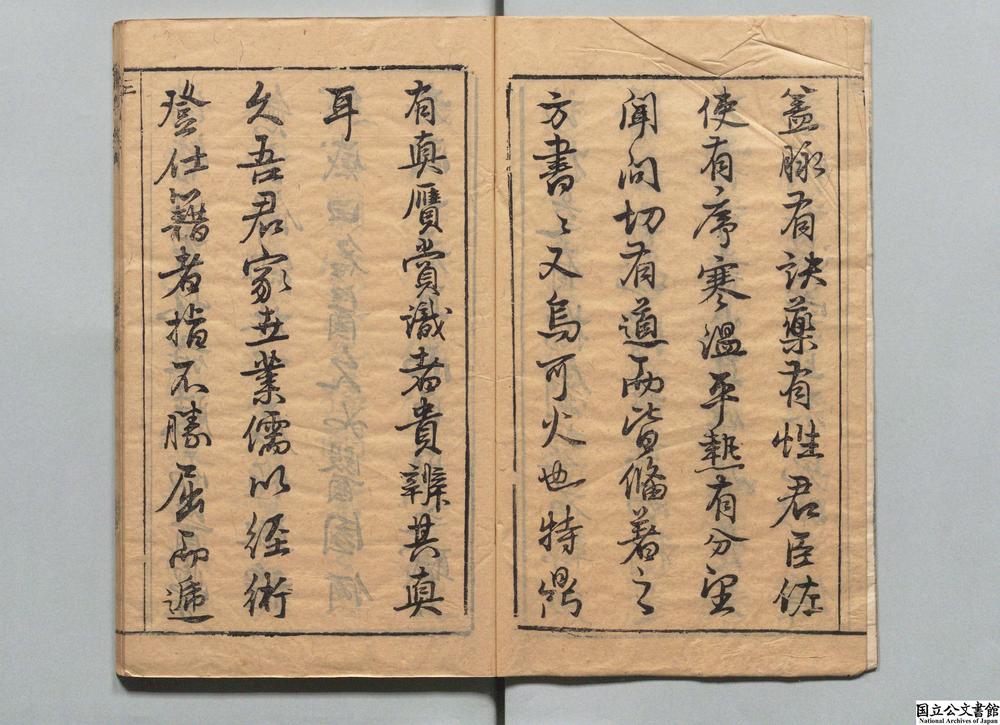 蓋脉有訣藥有性君臣佐
使有〻序寒〻溫平熱有分望
聞問切有道而皆脩著之
方書〻又烏可火也特鼎
有真贋賞識者貴辨其真
耳
久吾君家世業儒以經術
登仕籍者指不勝屈而遞
三
国立公文書館
National Archives of Japan